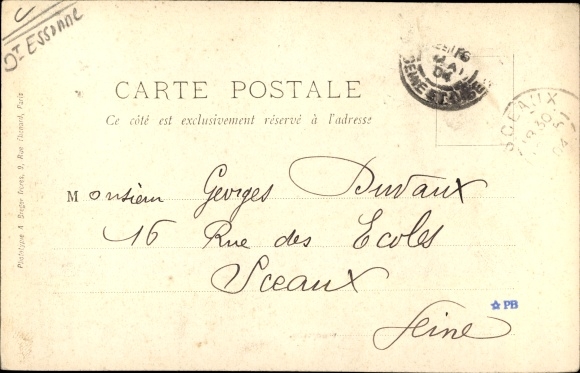 Dt ESSONNE
CARTE POSTALE
Ce côté est exclusivement réservé à l'adresse
SCEAUX
04
SEINE & OISE
04
Monsieur Georges Duvaux
16 Rue des Ecoles
Sceaux
Seine
PB
Phototypie A. Breger frères, 9, Rue Thénard, Paris